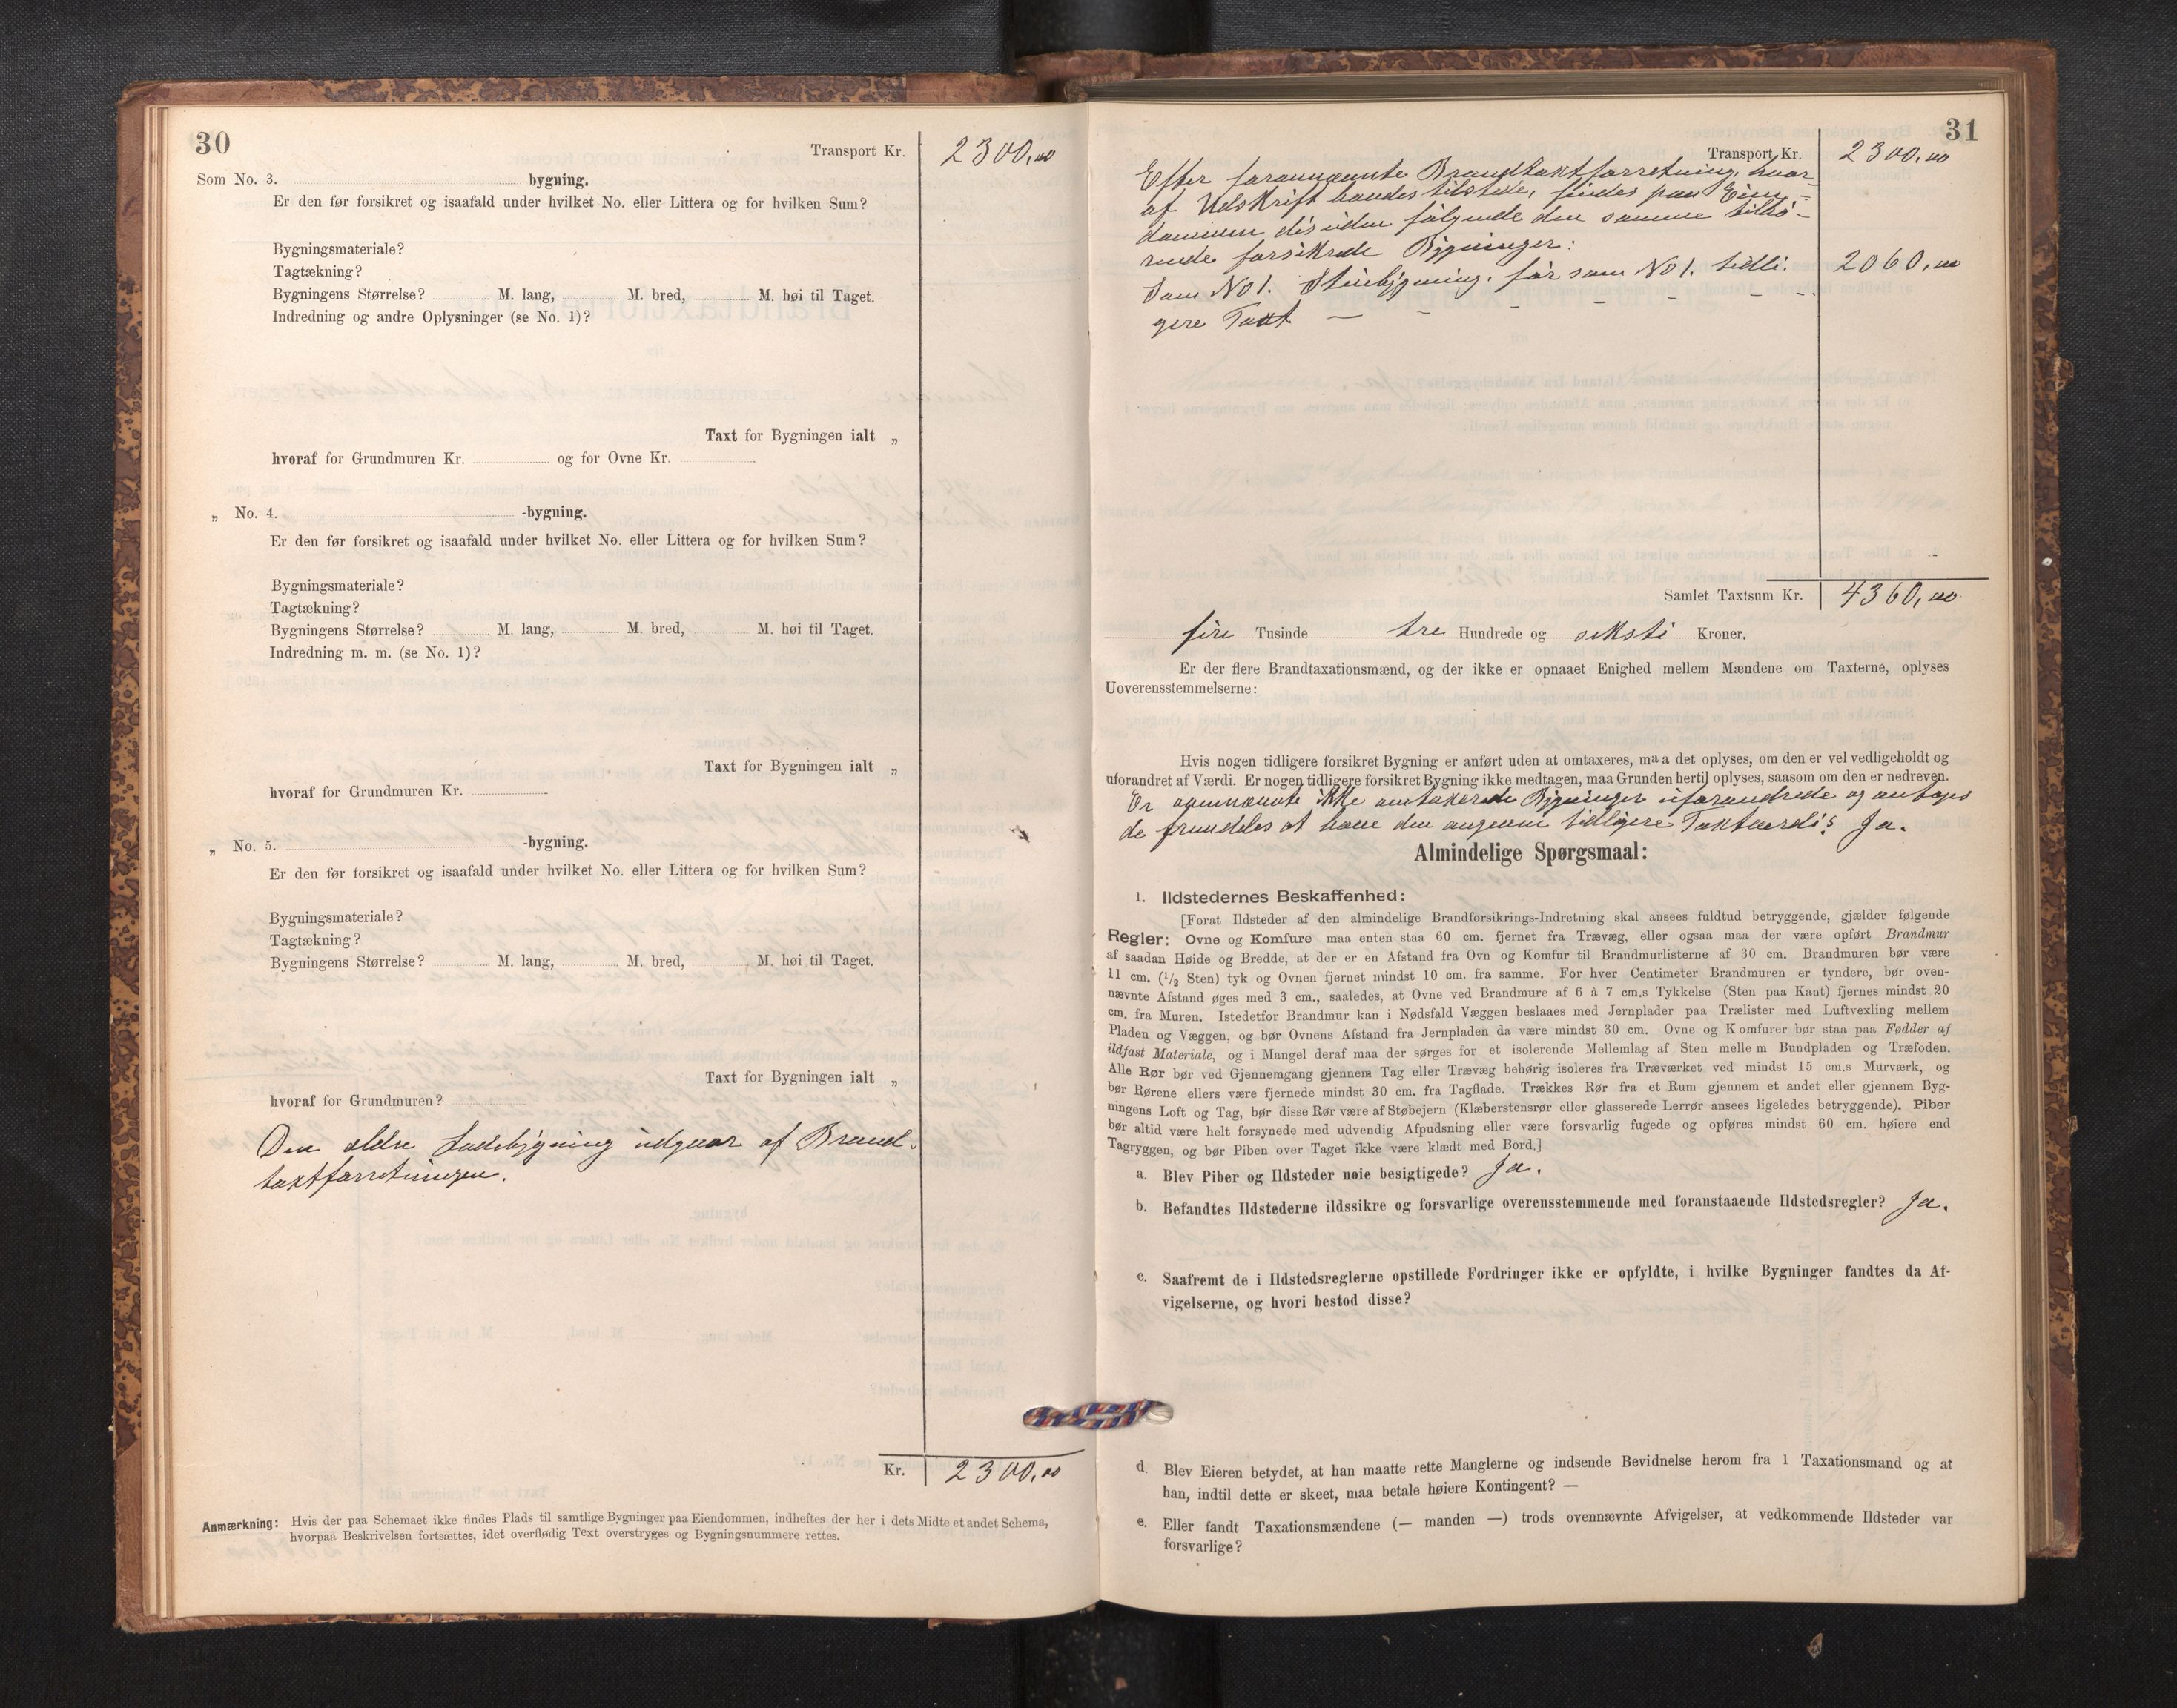 30
Transport Kr. 2300,00
Som No. 3. bygning.
Er den før forsikret og isaafald under hvilket No. eller Littera og for hvilken Sum?
Bygningsmateriale?
Tagtækning?
Bygningens Størrelse? M. lang, M. bred, M. høi til Taget.
Indredning og andre Oplysninger (se No. 1)?
Taxt for Bygningen ialt „
hvoraf for Grundmuren Kr. og for Ovne Kr.
„ No. 4. -bygning.
Er den før forsikret og isaafald under hvilket No. eller Littera og for hvilken Sum?
Bygningsmateriale?
Tagtækning?
Bygningens Størrelse? M. lang, M. bred, M. høi til Taget.
Indredning m. m. (se No. 1)?
Taxt for Bygningen ialt „
hvoraf for Grundmuren Kr.
„ No. 5. -bygning.
Er den før forsikret og isaafald under hvilket No. eller Littera og for hvilken Sum?
Bygningsmateriale?
Tagtækning?
Bygningens Størrelse? M. lang, M. bred, M. høi til Taget.
Taxt for Bygningen ialt „
hvoraf for Grundmuren?
Den ældre Ladebygning udgaar af Brand-
taxtforretningen.
Kr. 2300,00
Anmærkning: Hvis der paa Schemaet ikke findes Plads til samtlige Bygninger paa Eiendommen, indheftes der her i dets Midte et andet Schema,
hvorpaa Beskrivelsen fortsættes, idet overflødig Text overstryges og Bygningsnummere rettes.
31
Transport Kr. 2300,00
Efter forannævnte Brandtaxtforretning, hvor-
af Udskrift havdes tilstede, findes paa Eien-
dommen desuden følgende den samme tilhø-
rende forsikrede Bygninger:
Som No 1. Stuebygning, før som No 1. tidli- 2060,00
gere Taxt — - - - - -
Samlet Taxtsum Kr. 4360,00
fire Tusinde tre Hundrede og seksti Kroner.
Er der flere Brandtaxationsmænd, og der ikke er opnaaet Enighed mellem Mændene om Taxterne, oplyses
Uoverensstemmelserne:
Hvis nogen tidligere forsikret Bygning er anført uden at omtaxeres, maa det oplyses, om den er vel vedligeholdt og
uforandret af Værdi. Er nogen tidligere forsikret Bygning ikke medtagen, maa Grunden hertil oplyses, saasom om den er nedreven.
Er ovennævnte ikke omtakserede Bygninger uforandrede og antages
de fremdeles at have den angivne tidligere Taxtværdi? Ja.
Almindelige Spørgsmaal:
1. Ildstedernes Beskaffenhed:
[Forat Ildsteder af den almindelige Brandforsikrings-Indretning skal ansees fuldtud betryggende, gjælder følgende
Regler: Ovne og Komfure maa enten staa 60 cm. fjernet fra Trævæg, eller ogsaa maa der være opført Brandmur
af saadan Høide og Bredde, at der er en Afstand fra Ovn og Komfur til Brandmurlisterne af 30 cm. Brandmuren bør være
11 cm. (1/2 Sten) tyk og Ovnen fjernet mindst 10 cm. fra samme. For hver Centimeter Brandmuren er tyndere, bør oven-
nævnte Afstand øges med 3 cm., saaledes, at Ovne ved Brandmure af 6 à 7 cm.s Tykkelse (Sten paa Kant) fjernes mindst 20
cm. fra Muren. Istedetfor Brandmur kan i Nødsfald Væggen beslaaes med Jernplader paa Trælister med Luftvexling mellem
Pladen og Væggen, og bør Ovnens Afstand fra Jernpladen da være mindst 30 cm. Ovne og Komfurer bør staa paa Fødder af
ildfast Materiale, og i Mangel deraf maa der sørges for et isolerende Mellemlag af Sten mellem Bundpladen og Træfoden.
Alle Rør bør ved Gjennemgang gjennem Tag eller Trævæg behørig isoleres fra Træværket ved mindst 15 cm.s Murværk, og
bør Rørene ellers være fjernede mindst 30 cm. fra Tagflade. Trækkes Rør fra et Rum gjennem et andet eller gjennem Byg-
ningens Loft og Tag, bør disse Rør være af Støbejern (Klæberstensrør eller glasserede Lerrør ansees ligeledes betryggende). Piber
bør altid være helt forsynede med udvendig Afpudsning eller være forsvarlig fugede og opføres mindst 60 cm. høiere end
Tagryggen, og bør Piben over Taget ikke være klædt med Bord.]
a. Blev Piber og Ildsteder nøie besigtigede? Ja.
b. Befandtes Ildstederne ildssikre og forsvarlige overensstemmende med foranstaaende Ildstedsregler? Ja.
c. Saafremt de i Ildstedsreglerne opstillede Fordringer ikke er opfyldte, i hvilke Bygninger fandtes da Af-
vigelserne, og hvori bestod disse?
d. Blev Eieren betydet, at han maatte rette Manglerne og indsende Bevidnelse herom fra 1 Taxationsmand og at
han, indtil dette er skeet, maa betale høiere Kontingent? —
e. Eller fandt Taxationsmændene (— manden —) trods ovennævnte Afvigelser, at vedkommende Ildsteder var
forsvarlige?